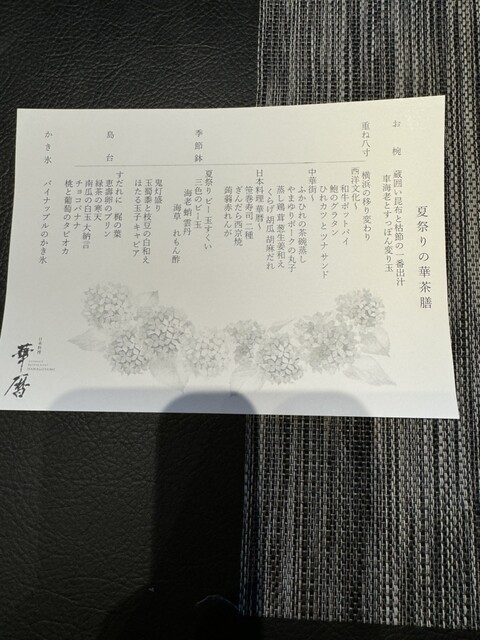 夏祭りの華茶膳
お椀
蔵囲い昆布と枯節の一番出汁
車海老とすっぽん変り玉
重ね八寸
横浜の移り変わり
西洋文化〜
和牛ポットパイ
鮑のグラタン
ひれカツとツナサンド
中華街〜
ふかひれの茶碗蒸し
やまゆりポークの丸子
蒸し鶏 茸 葱生姜和え
くらげ 胡瓜 胡麻だれ
日本料理 華暦〜
笹巻寿司 二種
ぎんだら西京焼
蒟蒻赤れんが
季節鉢
夏祭り ビー玉すくい
三色のビー玉
海老 蛸 雲丹
海草 れもん酢
島台
鬼灯盛り
玉蜀黍と枝豆の白和え
ほたる玉子 キャビア
すだれに 梶の葉
恵壽卵のプリン
緑茶の寒天
南瓜の白玉 大納言
チョコバナナ
桃と葡萄のタピオカ
かき氷
パイナップルのかき氷
日本料理
華暦